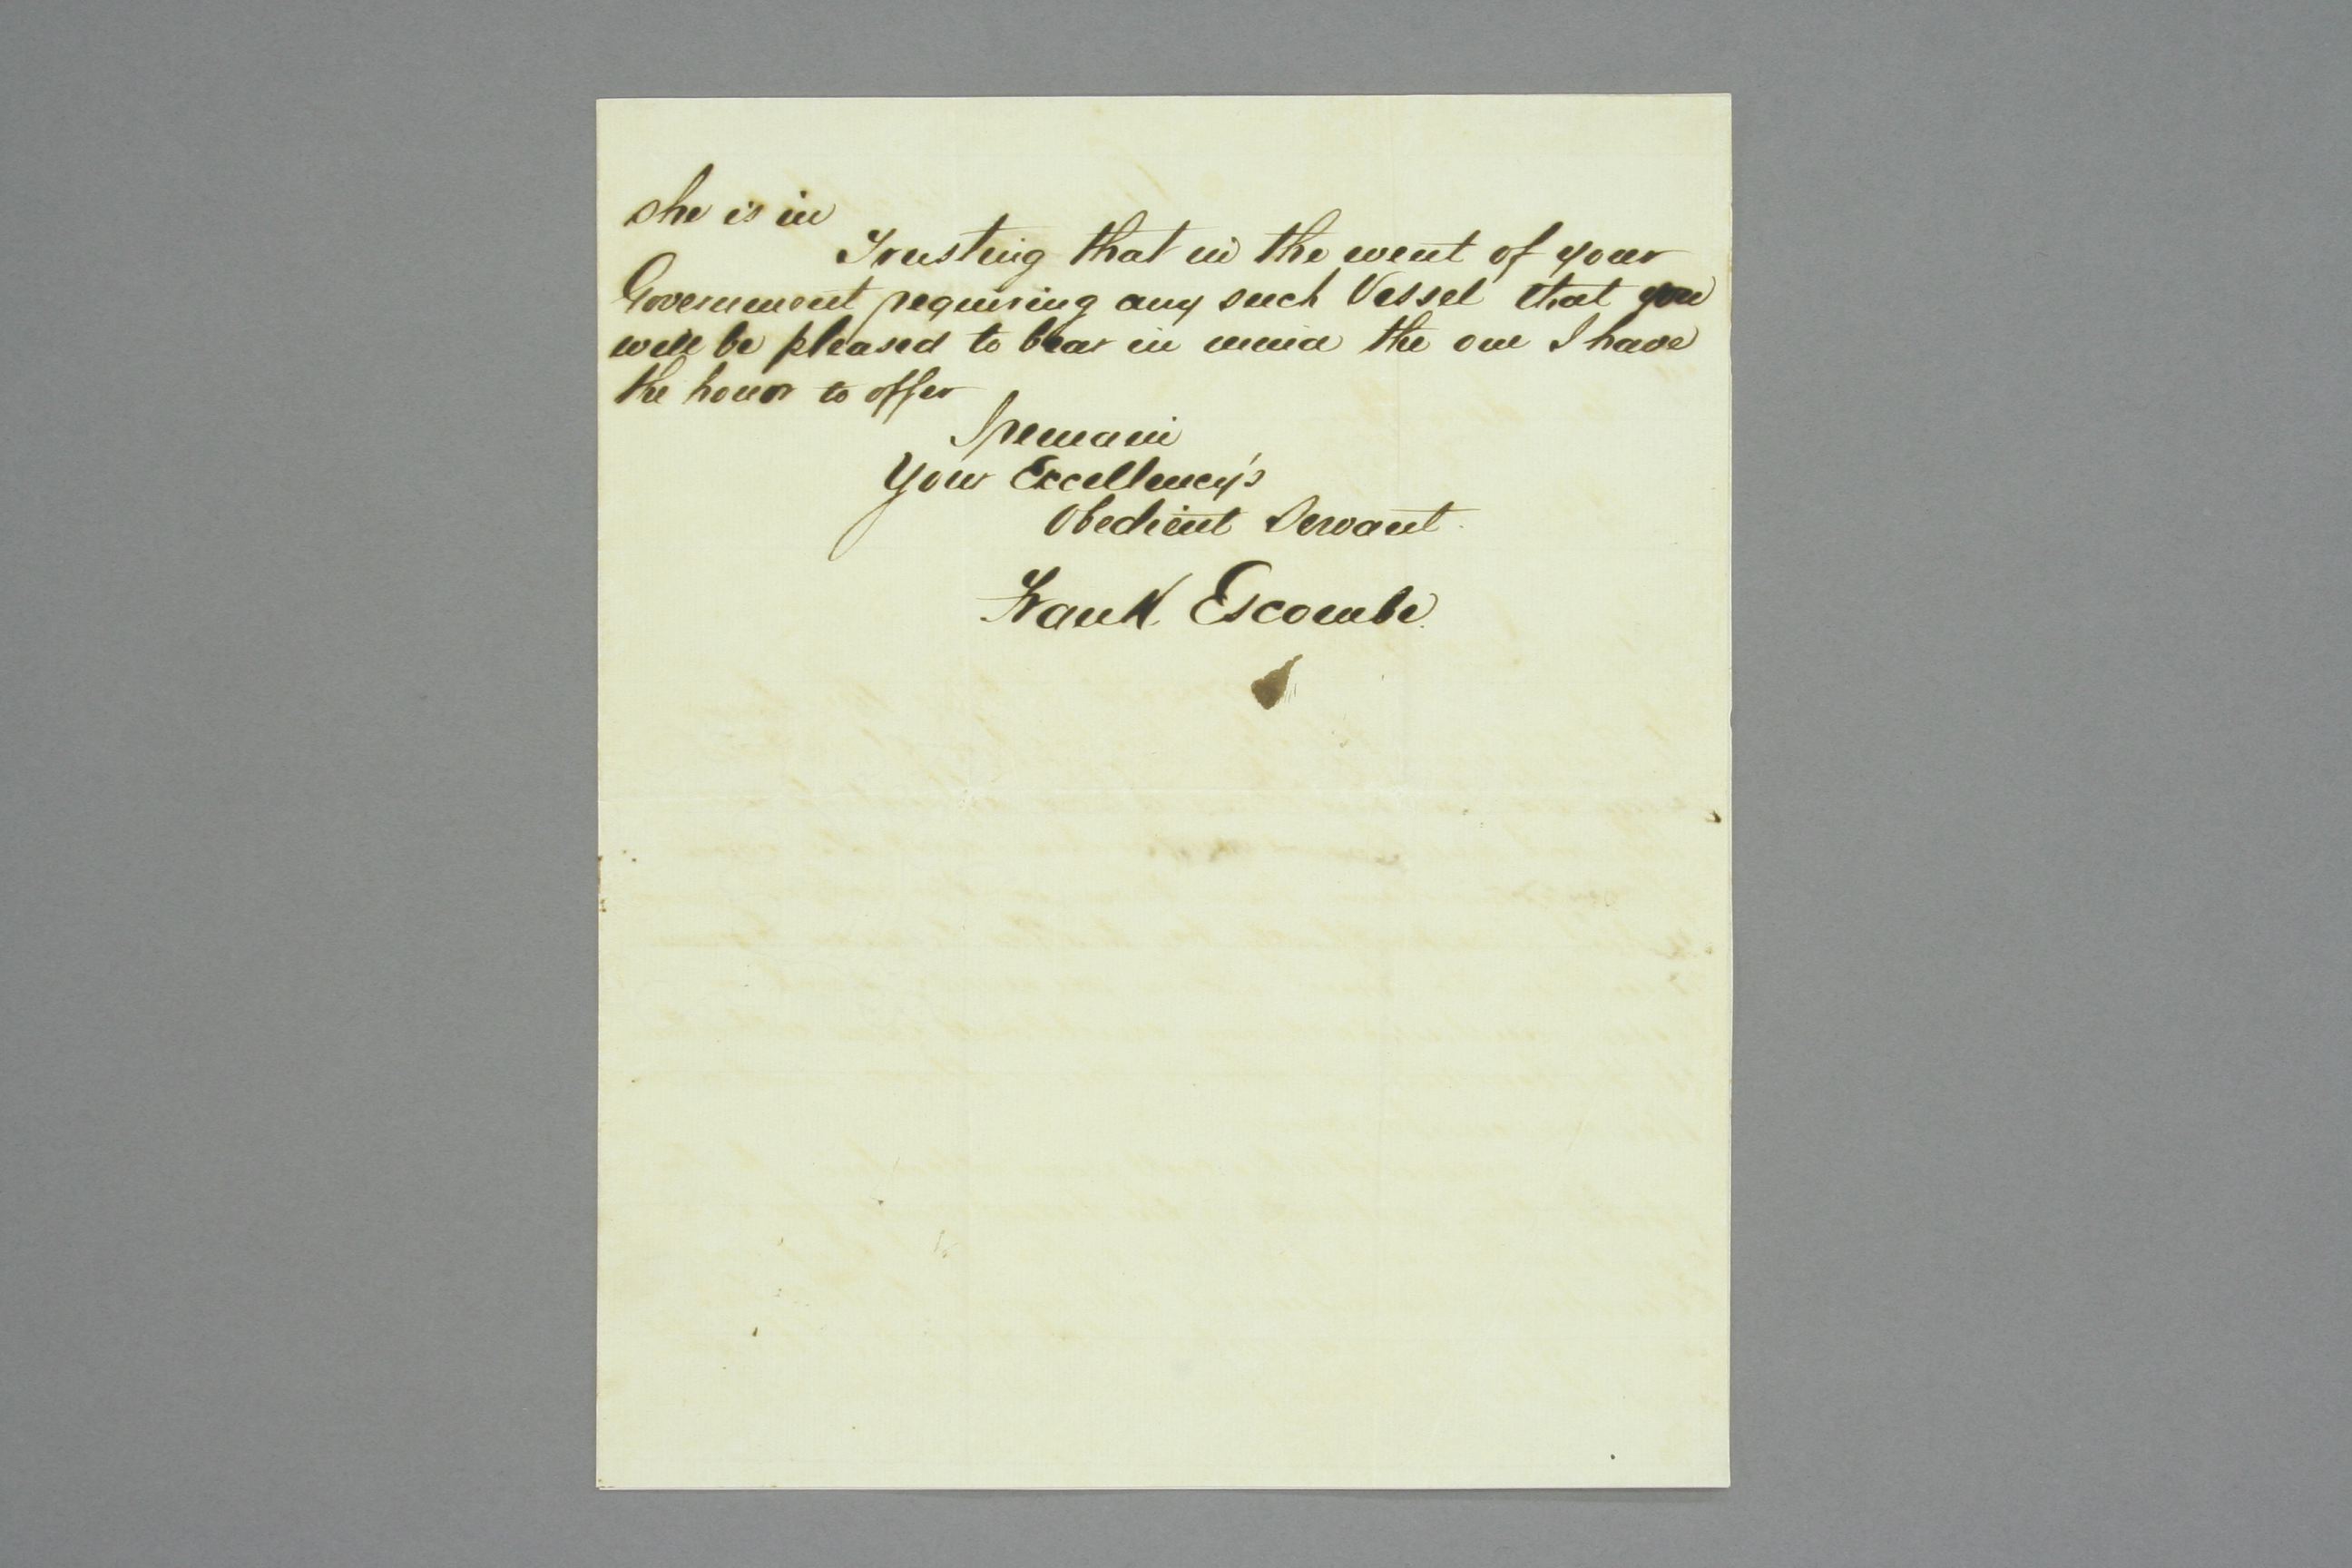 she is in
Trusting that in the event of your
Government requiring any such Vessel that you
will be pleased to bear in mind the one I have
the honor to offer
I remain
Your Excellency's
Obedient Servant.
Frank Escombe.